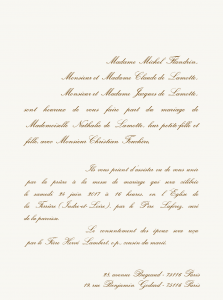 Madame Michel Flandrin,
Monsieur et Madame Claude de Lamotte,
Monsieur et Madame Jacques de Lamotte,
sont heureux de vous faire part du mariage de
Mademoiselle Nathalie de Lamotte, leur petite-fille et
fille, avec Monsieur Christian
Ils vous prient d'assister ou de vous unir
par la prière à la messe de mariage qui sera célébrée
le samedi 24 juin 2017 à 16 heures, en l'Eglise de
la (Indre-et-Loire), par le Père
de la paroisse.
Le consentement des époux sera reçu
par le Père Hervé
75116 Paris
19, rue Benjamin Godard - 75116 Paris